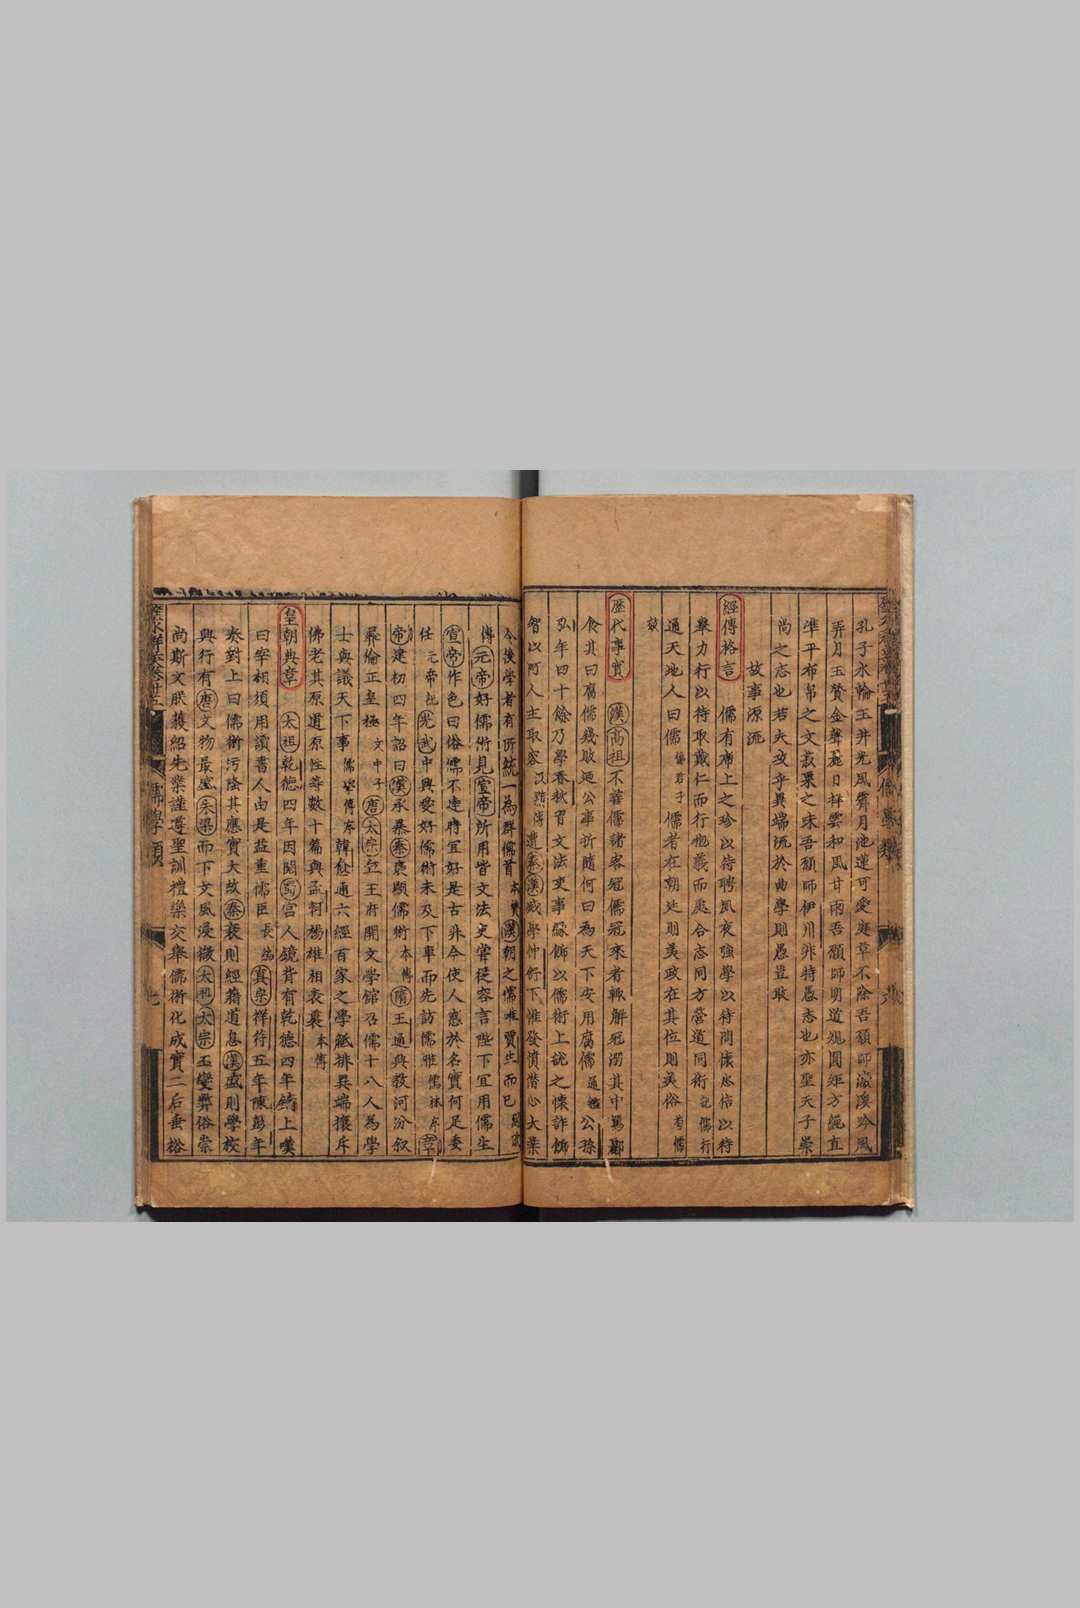 孔子水輪玉井光風霽月池蓮可愛庭草不除吾願師濂溪吟風
弄月玉贊金聲瑞日祥雲和風甘雨吾願師明道規圓矩方繩直
準平布帛之文菽粟之味吾願師伊川非特愚志也亦聖天子崇
尚之志也若夫攻乎異端流於曲學則愚豈敢
故事源流
經傳格言 儒有席上之珍以待聘夙夜強學以待問懷忠信以待
舉力行以待取戴仁而行抱義而處合志同方營道同術記儒行
通天地人曰儒揚君子 儒者在朝廷則美政在其位則美俗荀儒
效
歷代事實 漢高祖不善儒諸客冠儒冠來者輒解冠溺其中罵酈
食其曰腐儒幾敗廼公事折隨何曰為天下安用腐儒通鑑公孫
弘年四十餘乃學春秋習文法吏事緣飾以儒術上說之懷詐飾
智以阿人主取容汲黯傳 遭秦漢滅學仲舒下帷發憤潛心大業
令後學者有所統一為群儒首本贊漢朝之儒惟賈生而已
傳元帝好儒術見宣帝所用皆文法吏嘗從容言陛下宜用儒生
宣帝作色曰俗儒不達時宜好是古非今使人惑於名實何足委
任元帝紀光武中興愛好儒術未及下車而先訪儒雅儒林序章
帝建初四年詔曰漢承暴秦褒顯儒術本傳隋王通興教河汾叙
彝倫正皇極文中子 唐太宗在王府開文學館召儒十八人為學
士與議天下事儒學傳序韓愈通六經百家之學觝排異端攘斥
佛老其原道原性等數十篇與孟軻揚雄相表裏本傳
皇朝典章 太祖乾德四年因閱蜀宮人鏡背有乾德四年鑄上嘆
曰宰相須用讀書人由是益重儒臣長編真宗祥符五年陳彭年
奏對上曰儒術污隆其應實大故秦衰則經籍道息漢盛則學校
興行有唐文物最盛朱梁而下文風浸微太祖太宗丕變弊俗崇
尚斯文朕獲紹先業謹遵聖訓禮樂交舉儒術化成實二后垂裕
儒學類